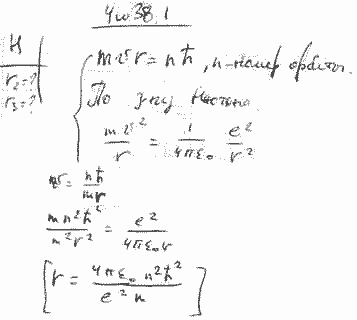 Чиз8.1
H
r₂=?
r₃=?
mvr = nħ, n-номер орбиты.
По з-ну Ньютона
mv²/r = 1/4πε₀ e²/r²
v = nħ/mr
mn²ħ²/m²r² = e²/4πε₀r
[r = 4πε₀ n²ħ²/e² m]